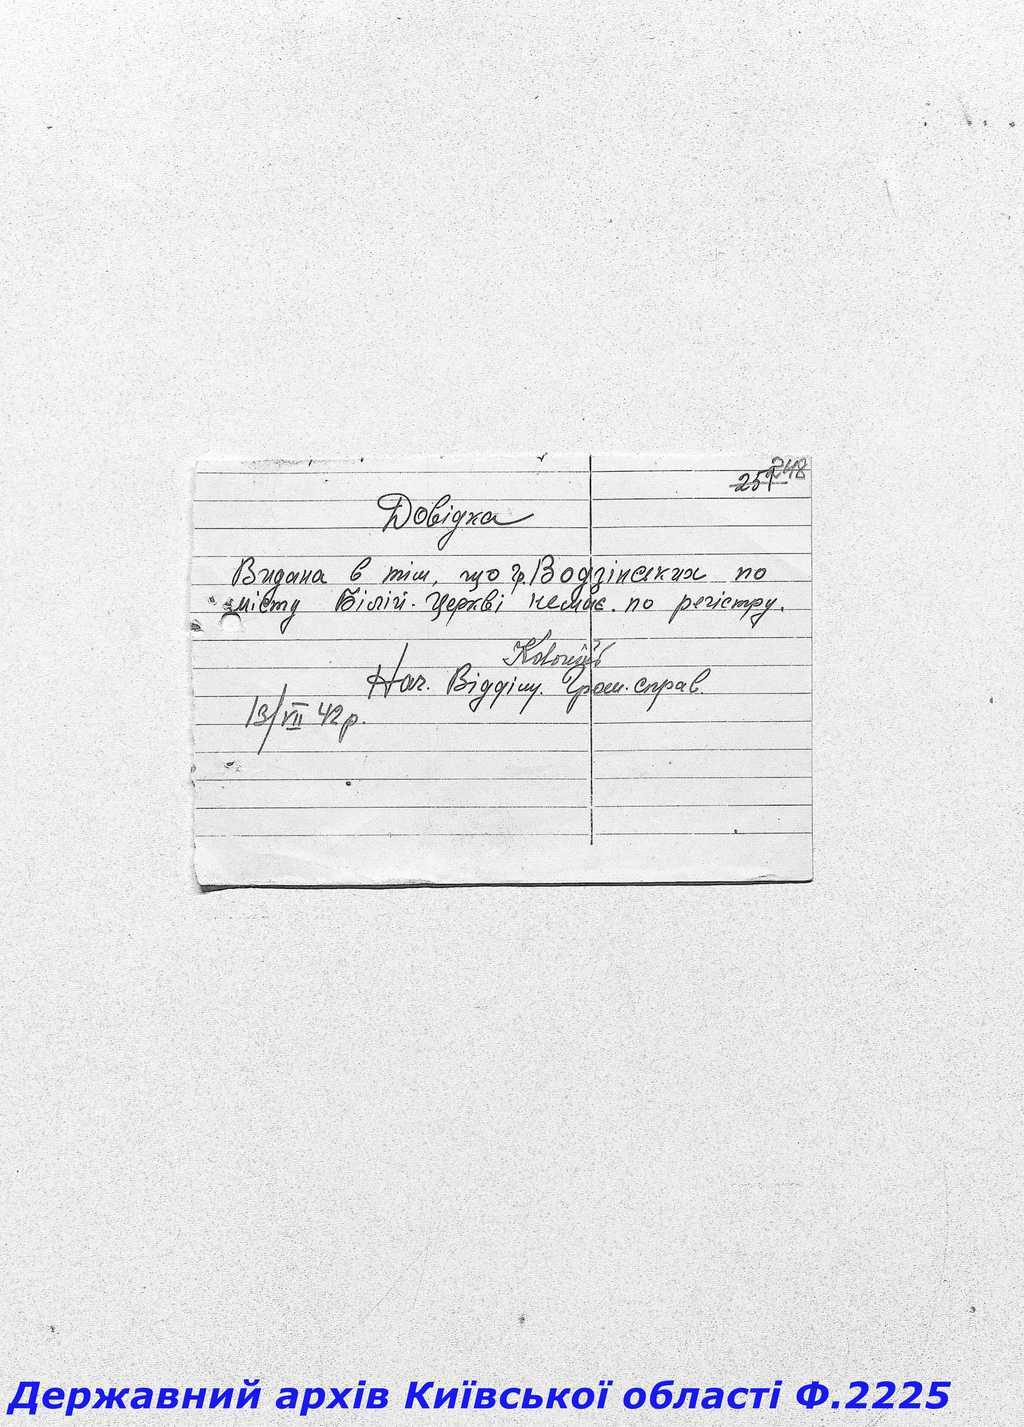 248
251
Довідка
Видана в тім, що гр. Водзінських по
місту Білій-Церкві немає по регістру.
Нач. Відділу Гром. справ.
13/VII 42 р.
Державний архів Київської області Ф.2225